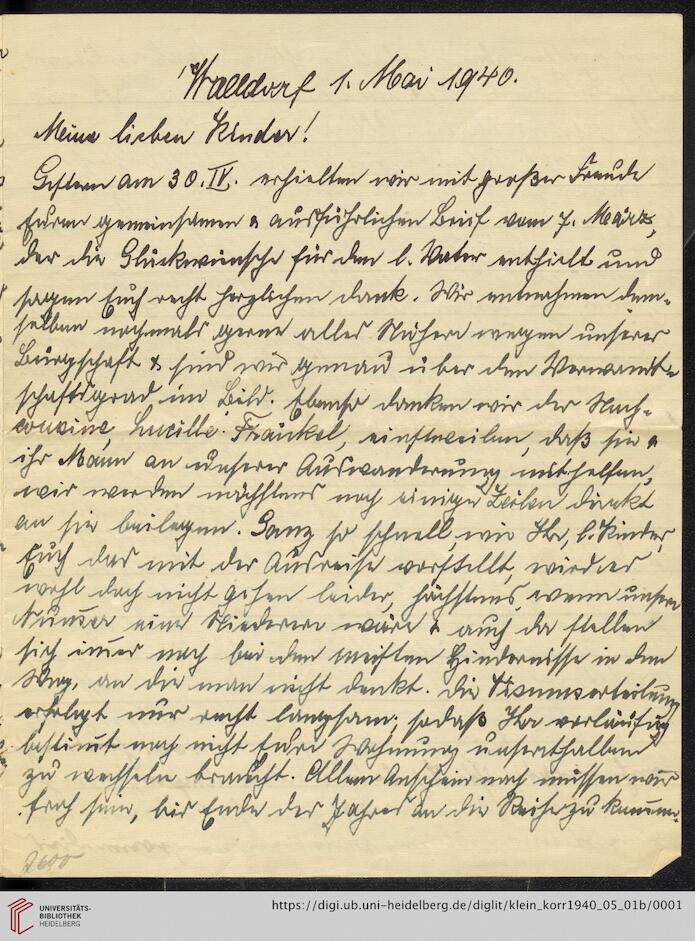 Walldorf 1. Mai 1940.
Meine lieben Kinder!
Gestern am 30. IV. erhielten wir mit großer Freude
Euren gemeinsamen & ausführlichen Brief vom 7. März,
der die Glückwünsche für den l. Vater enthielt und
sagen Euch recht herzlichen Dank. Wir entnahmen dem-
selben nochmals gerne alles Nähere wegen unserer
Bürgschaft & sind wir genau über den Verwandt-
schaftsgrad im Bild. Ebenso danken wir der Nach-
cousine, Lucille Fränkel, einstweilen, daß sie &
ihr Mann an unserer Auswanderung mithelfen,
wir werden nächstens noch einige Zeilen direkt
an sie beilegen. Ganz so schnell, wie Ihr, l. Kinder,
Euch das mit der Ausreise vorstellt, wird es
wohl doch nicht gehen leider, höchstens, wenn unsere
Numer eine Niederere wäre & auch da stellen
sich imer noch bei den meisten Hindernisse in den
Weg, an die man nicht denkt. Die Visumserteilung
erfolgt nur recht langsam, sodaß Ihr vorläufig
bestimt noch nicht Eure Wohnung unserthalben
zu wechseln braucht. Allem Anschein nach müssen wir
froh sein, bis Ende des Jahres an die Reihe zu kommen.
UNIVERSITÄTS-
BIBLIOTHEK
HEIDELBERG
https://digi.ub.uni-heidelberg.de/diglit/klein_korr1940_05_01b/0001